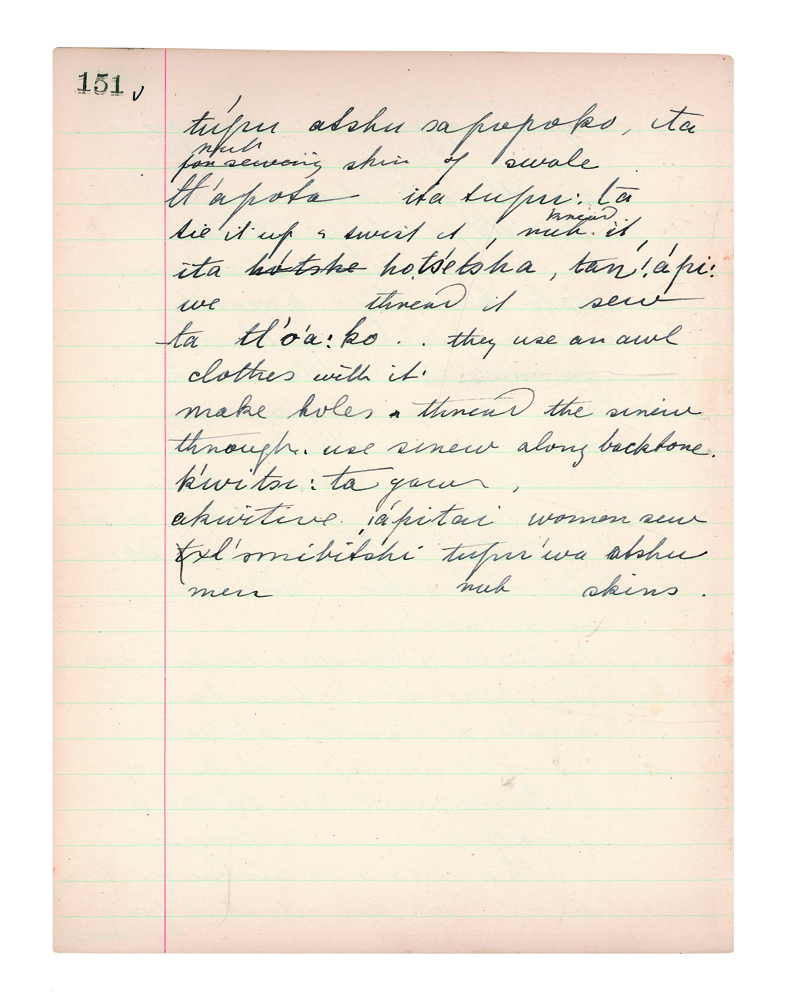 151 v
túpu atshu sapopoko, ita
rub
for sewing skin of swale
tl'apota ita tupu: ta
knead
tie it up & twist it, rub it,
ita hótske hotsetsha, tan!ápi:
we thread it sew
ta tl'óa:ko .. they use an awl
clothes with it.
make holes & thread the sinew
through. use sinew along backbone.
k'witsi: ta
akwitive ápitai women sew
txl'smibitski tupu'wa atshu
men rub skins.